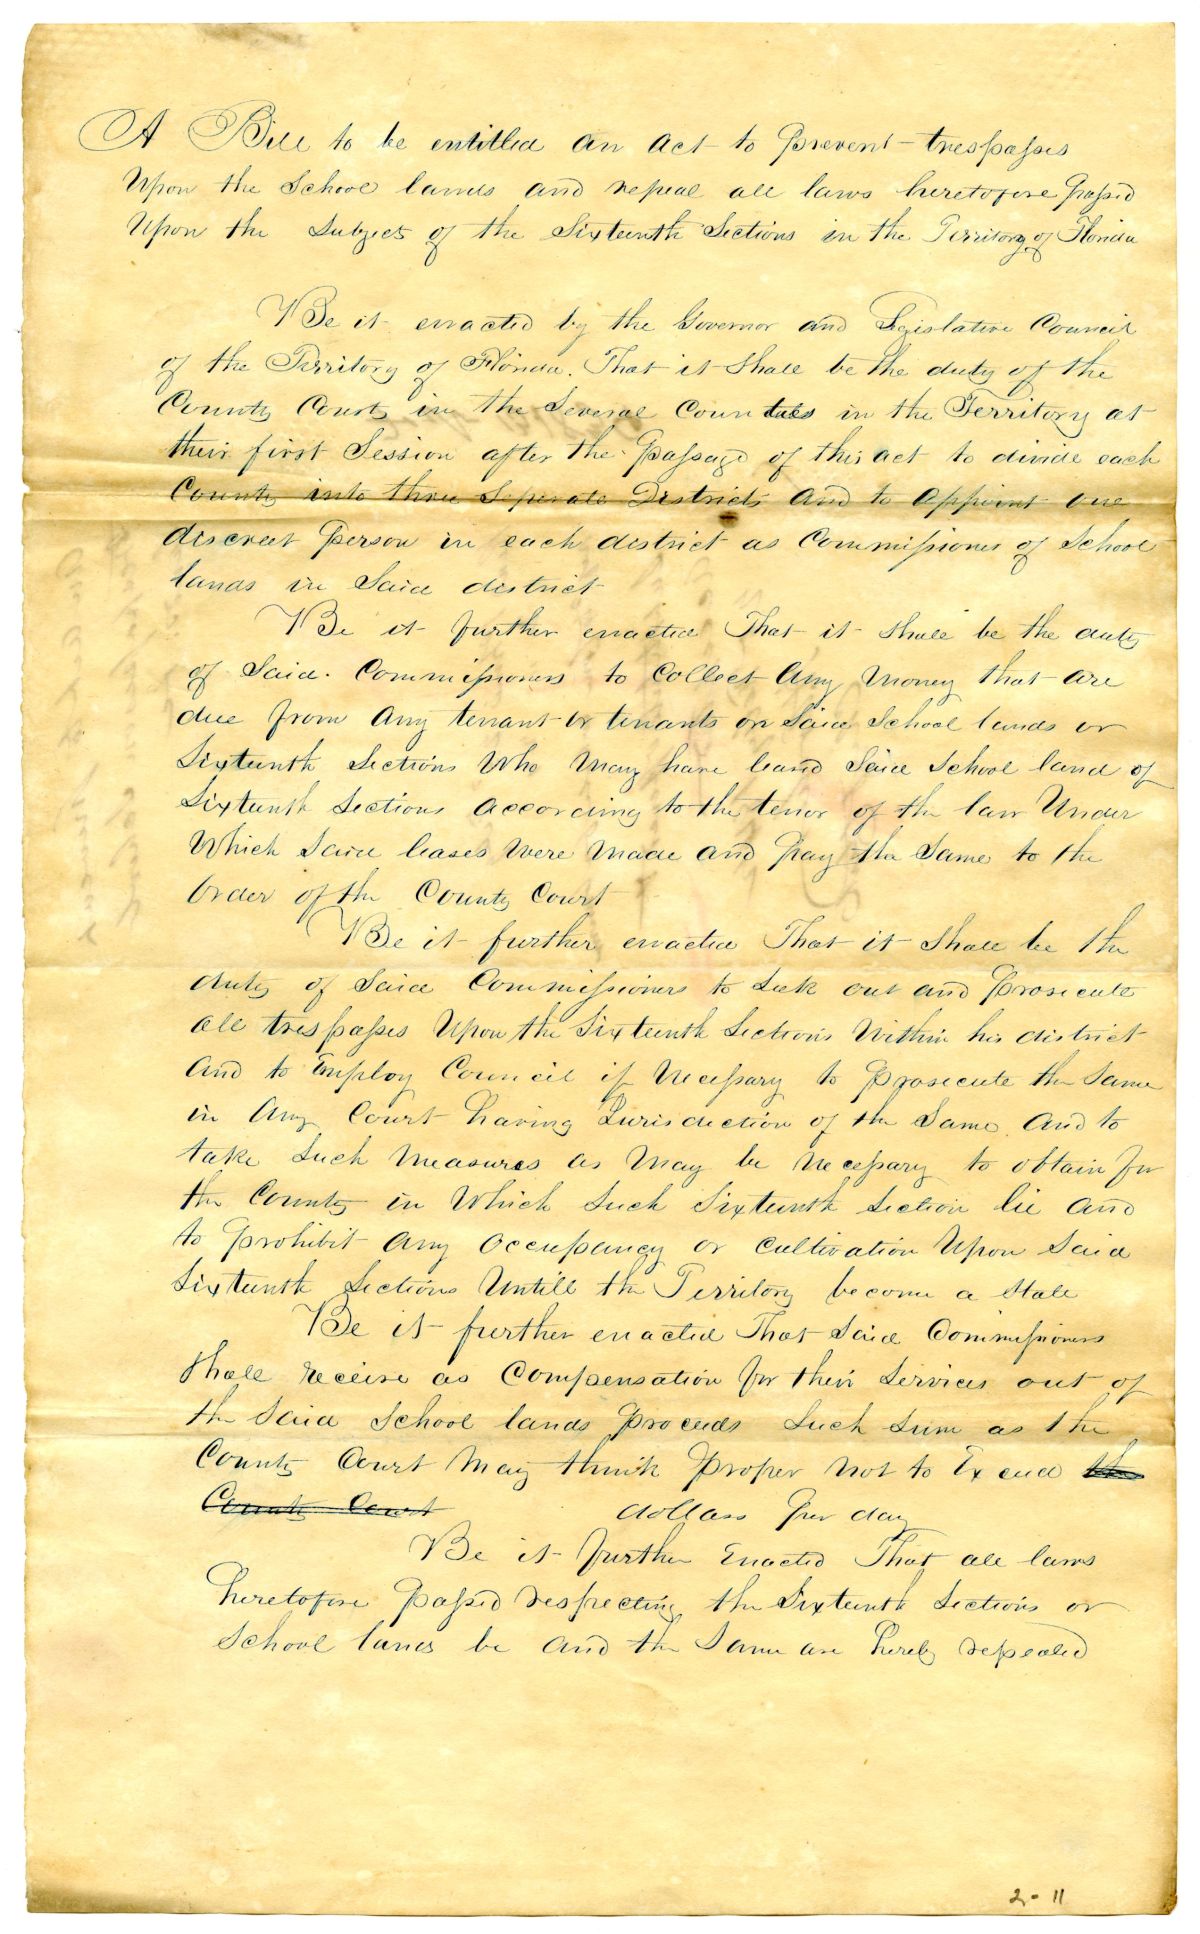 A Bill to be entitled an act to prevent trespasses
Upon the School lands and repeal all laws heretofore passed
Upon the Subject of the Sixteenth Sections in the Territory of Florida
Be it enacted by the Governor and Legislative Council
of the Territory of Florida. That it Shall be the duty of the
County Courts in the Several Counties in the Territory at
their first Session after the passage of this act to divide each
County into three Seperate Districts and to appoint one
discreet person in each district as Commissioner of School
lands in Said district
Be it further enacted That it Shall be the duty
of Said Commissioners to Collect Any Money that are
due from Any tenant or tenants on Said School lands or
Sixteenth Sections Who May have leasd Said School land of
Sixteenth Sections According to the tenor of the law Under
Which Said leases Were Made and pay the Same to the
Order of the County Court
Be it further enacted That it Shall be the
duty of Said Commissioners to Seek out and prosecute
all trespasses Upon the Sixteenth Sections Within his district
And to Employ Council if Necessary to prosecute the Same
in Any Court having Jurisdiction of the Same And to
take Such Measures as May be Necessary to obtain for
the County in Which Such Sixteenth Section lie And
to prohibit Any Occupancy or Cultivation Upon Said
Sixteenth Sections Untill the Territory become a State
Be it further enacted That Said Commissioners
Shall receive as Compensation for their Services out of
the Said School lands proceeds Such Sum as the
County Court May think proper Not to Exceed the
County Court dollars Per day
Be it further Enacted That all laws
heretofore passed respecting the Sixteenth Sections or
School lands be and the Same are hereby repealed
2-11